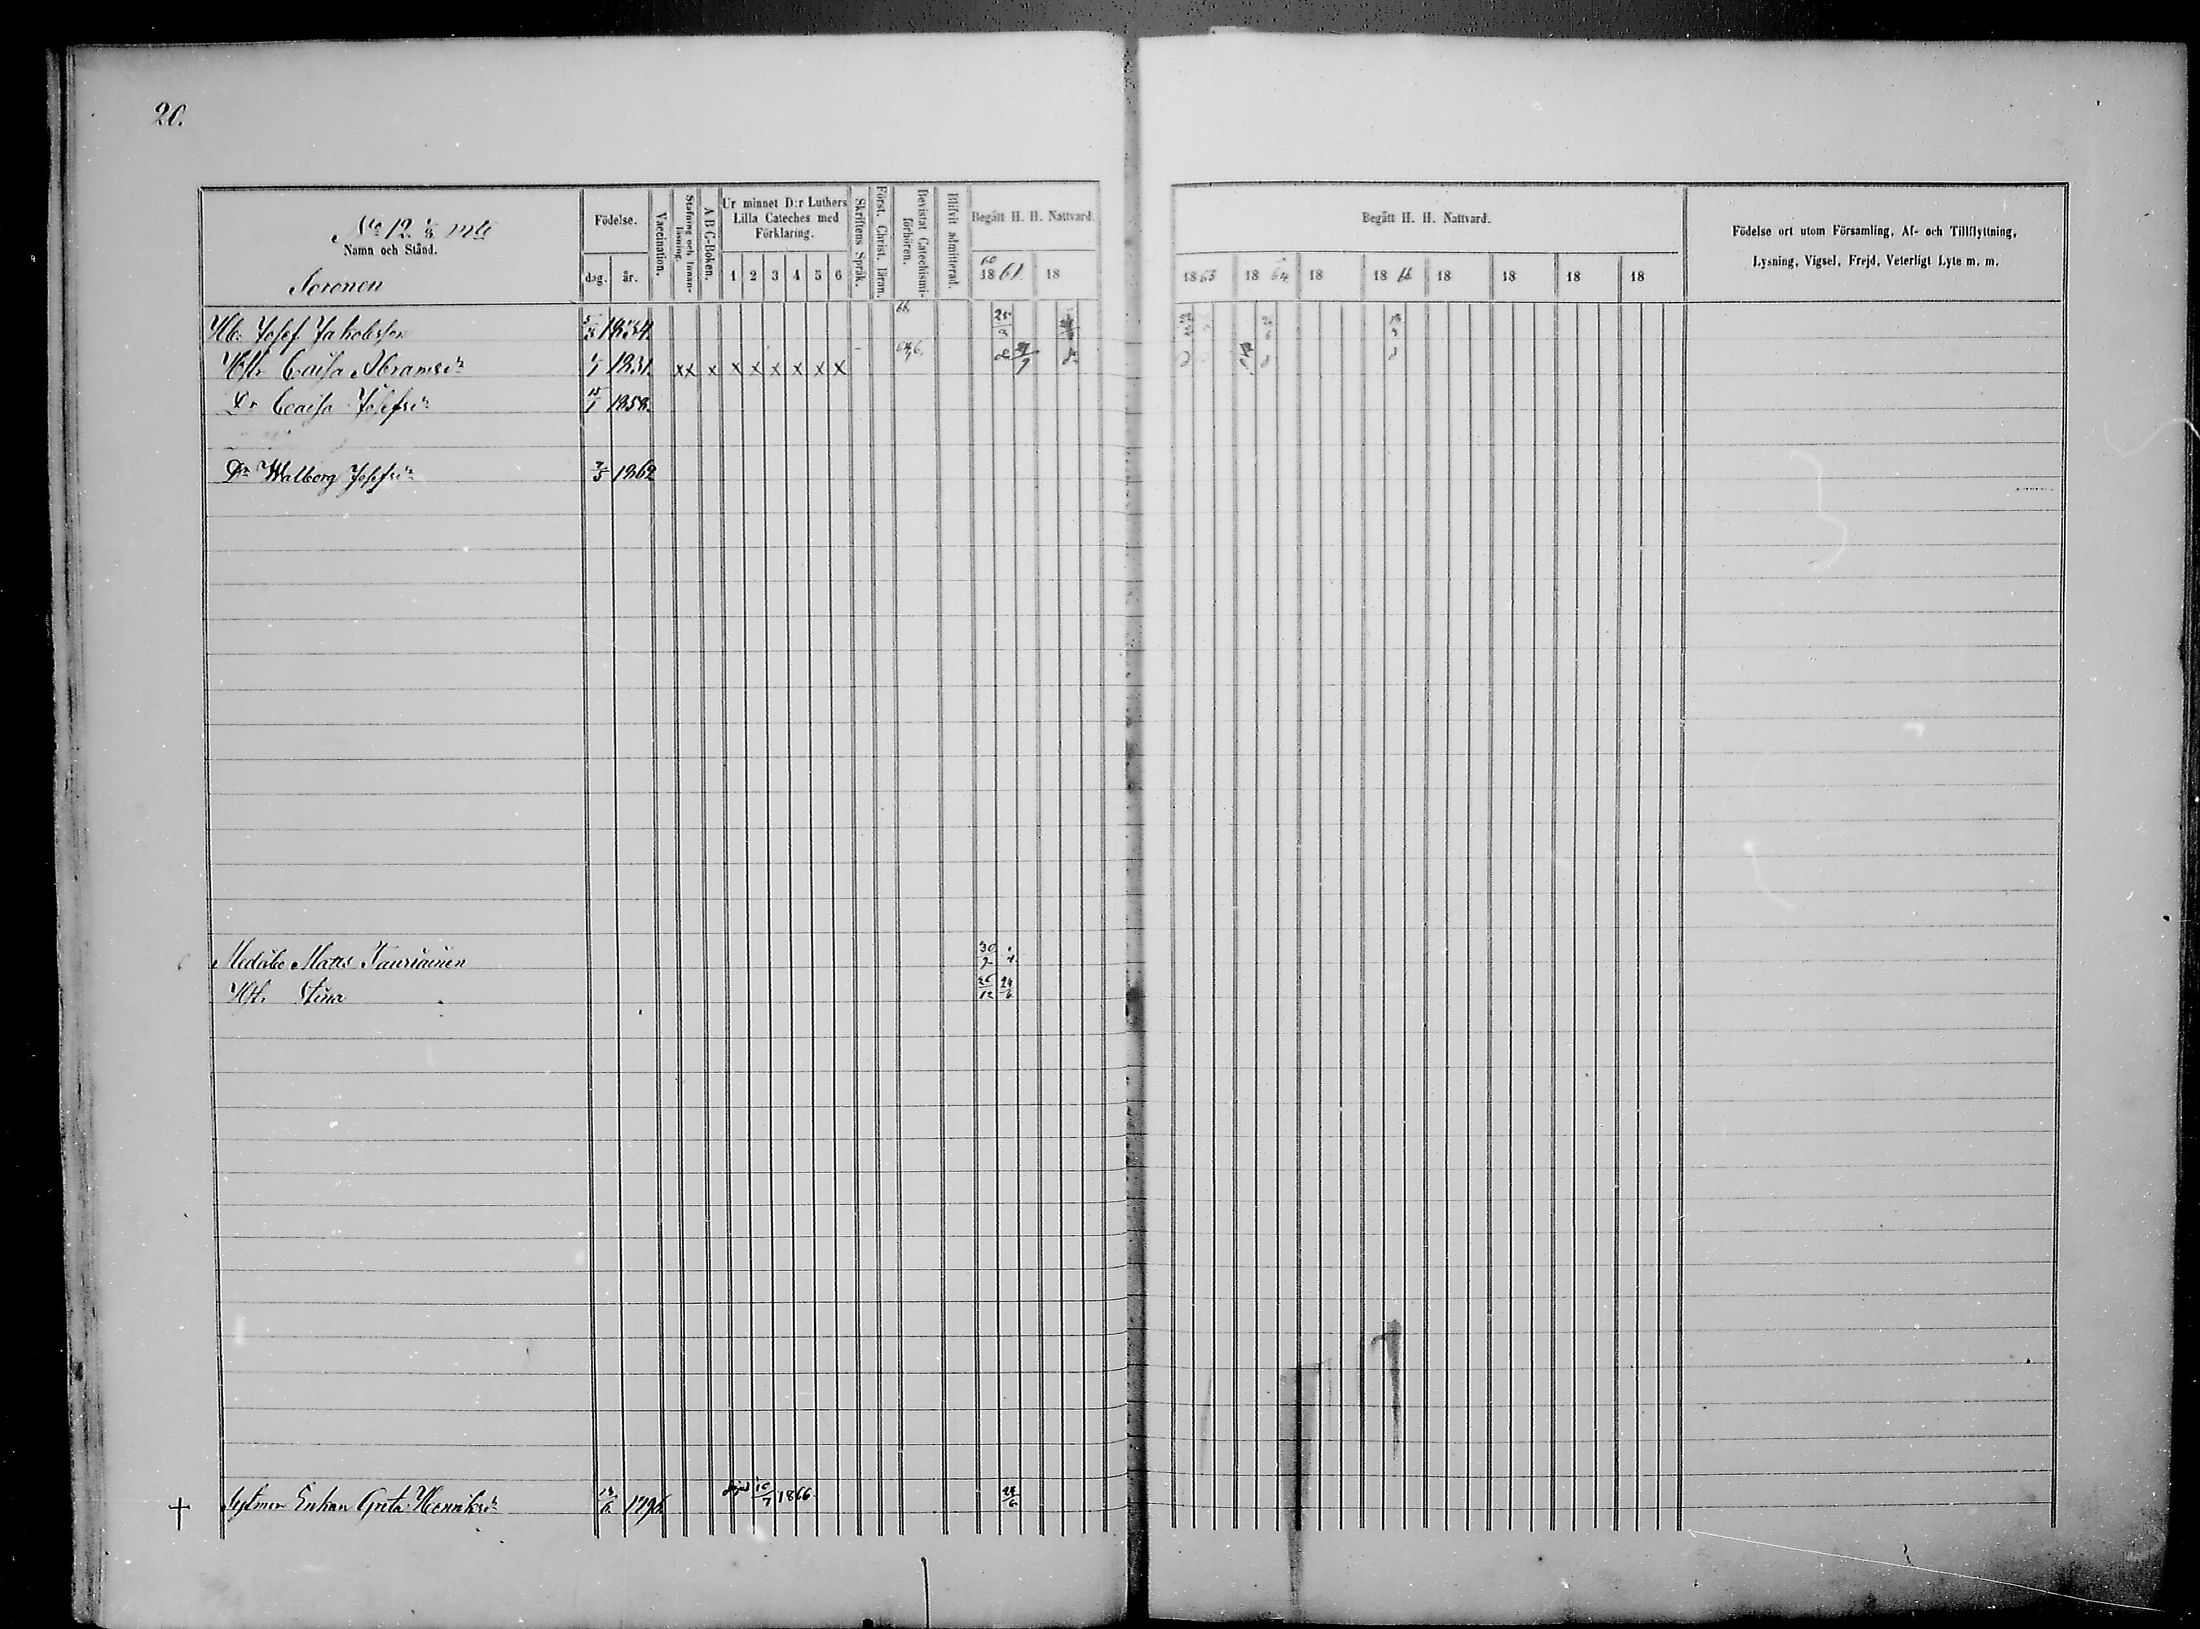 20.
No 12. 1/3 mtl
Namn och Stånd.
Soronen
Födelse.
dag. år.
Vaccination.
Stafning och Innan-läsning.
A B C-Boken.
Ur minnet D:r Luthers
Lilla Cateches med
Förklaring.
1 2 3 4 5 6
Skriftens Språk.
Först. Christ. läran.
Bevistat Catechismi-förhören.
Blifvit admitterad.
Begått H. H. Nattvard.
60
18 61. 18
Begått H. H. Nattvard.
18 63 18 64 18 18 66 18 18 18 18
Födelse ort utom Församling, Af- och Tillflyttning,
Lysning, Vigsel, Frejd, Veterligt Lyte m. m.
Hb. Josef Jakobsson 1834. 25/3
Hst. Caisa Abramsdr 1831. x x x x x x x x x
Dr Caisa Josefsdr 15/1 1858.
Dr Walborg Josefsdr 7/5 1862
Medåbo Matts Tauriainen
Hst. Stina 26/12 24/6
Sytmor Enkan Greta Henriksdr 1796 död 10/7 1866. 24/6